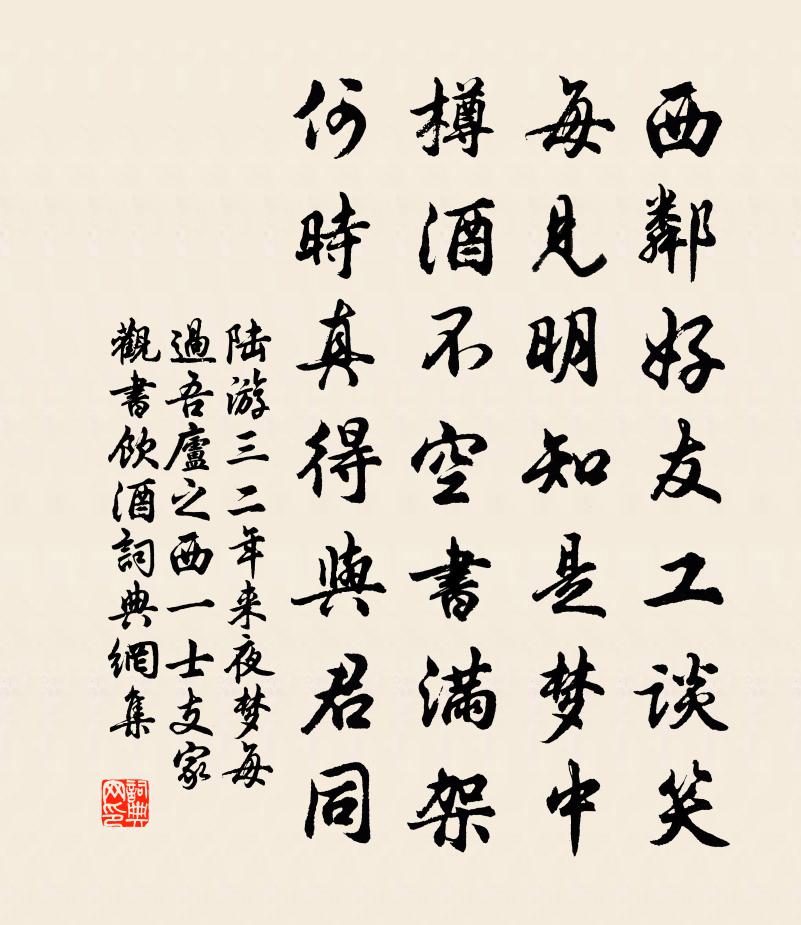 西鄰好友工談笑
每見明知是梦中
樽酒不空書滿架
何時真得與君同
陆游三二年来夜梦每
過吾廬之西一士友家
觀書飲酒詞典網集
詞典网印